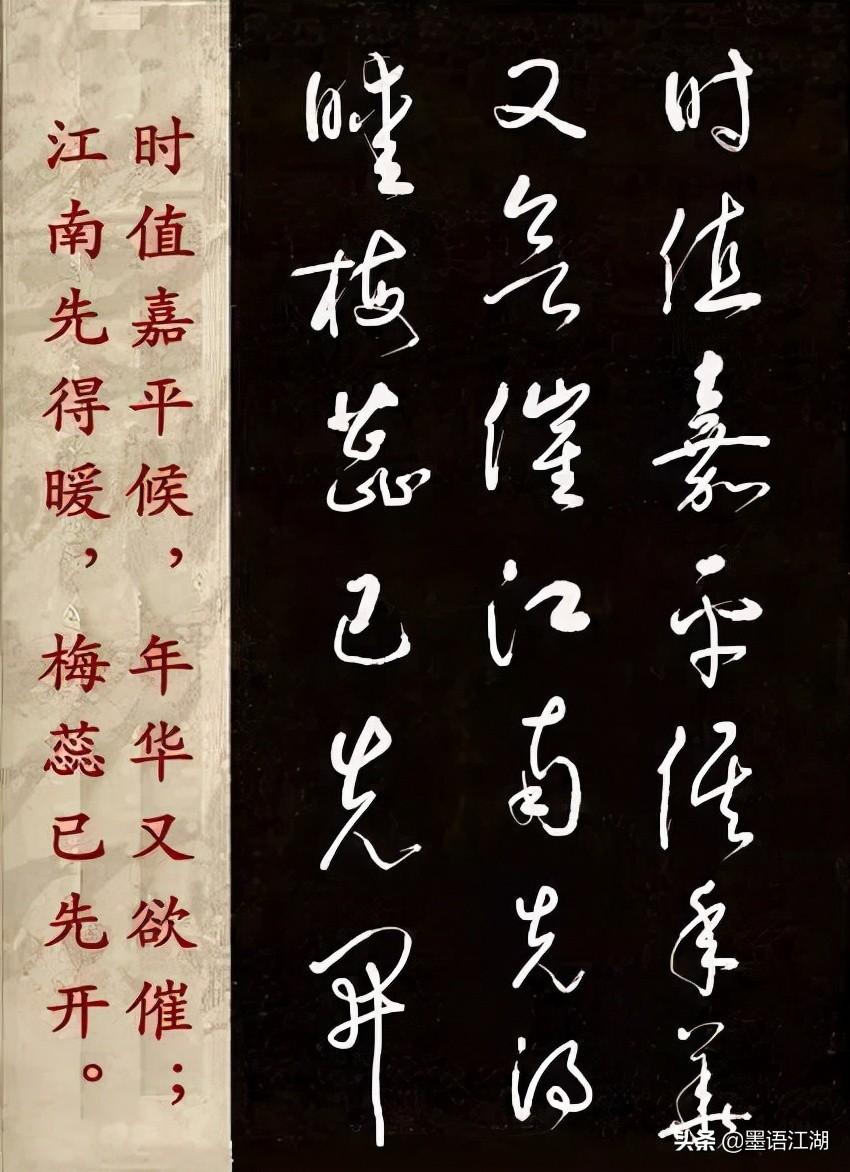 时值嘉平候年華
又欲催江南先得
暖梅蕊已先開
时值嘉平候，年华又欲催；
江南先得暖，梅蕊已先开。
头条 @墨语江湖